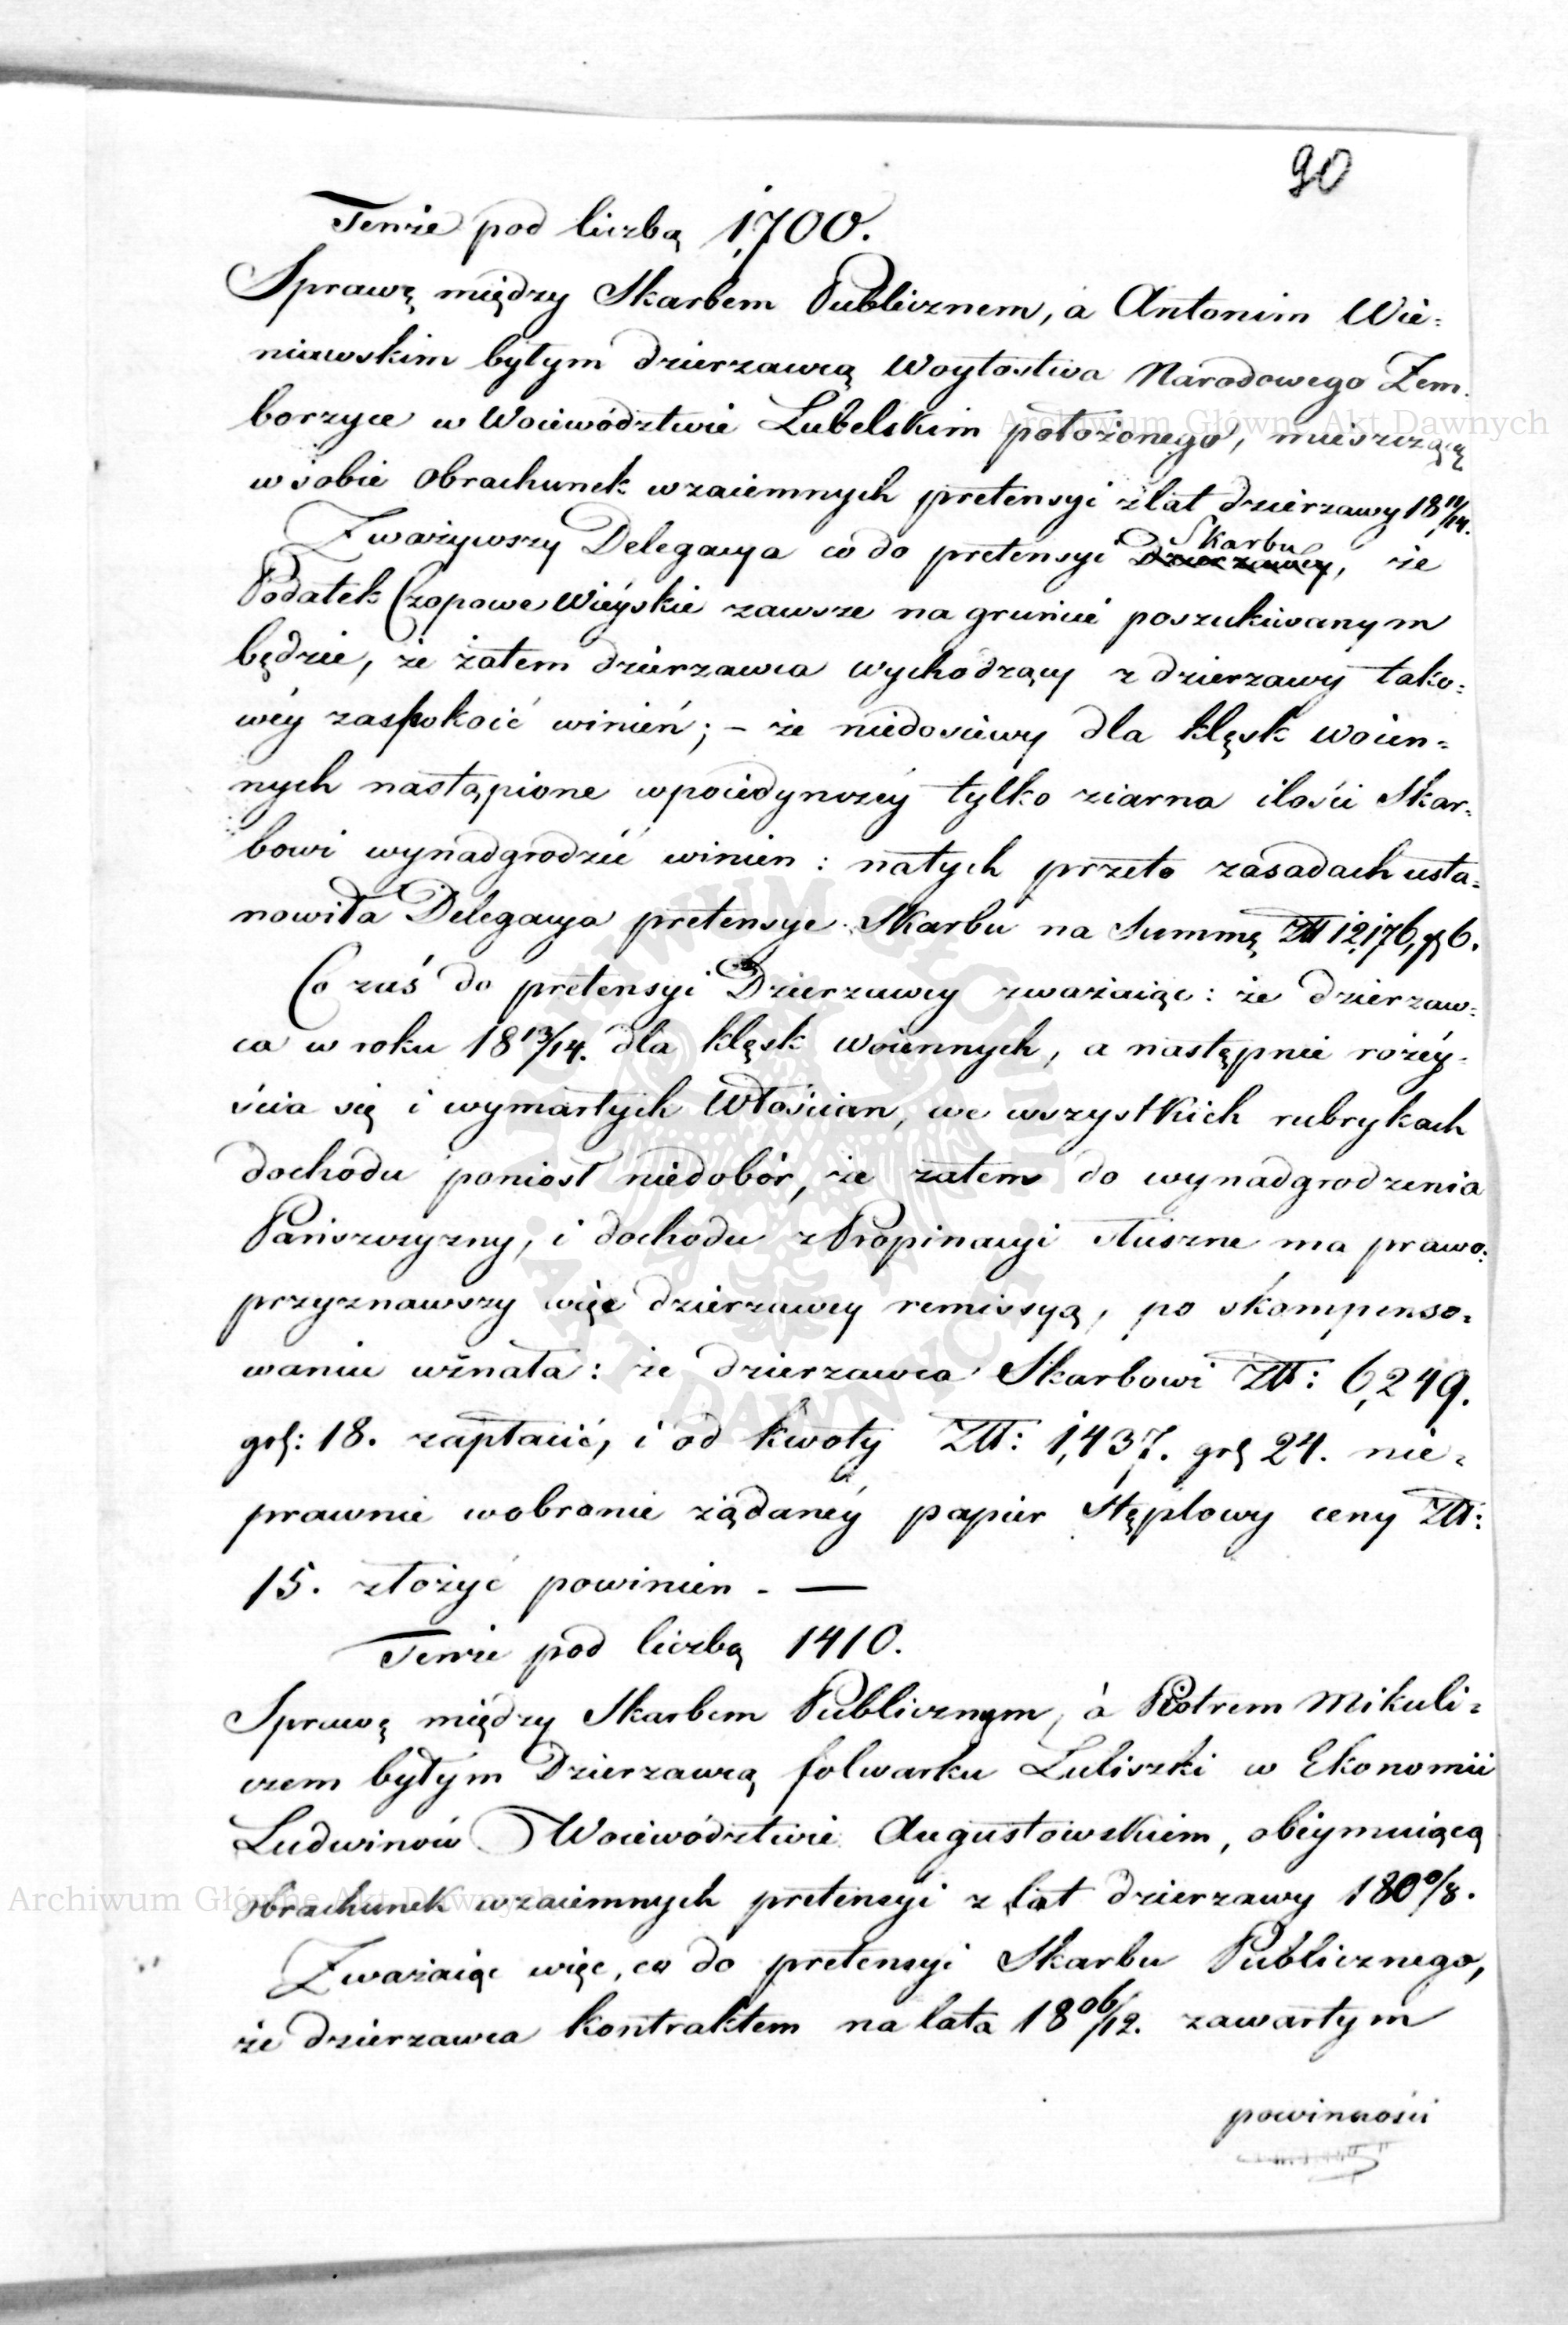 90
Tenże pod liczbą 1,700.
Sprawę między Skarbem Publicznem, a Antonim Wie=
niawskim byłym dzierzawcą Woytostwa Narodowego Zem=
borzyce w Woiewództwie Lubelskim położonego, mieszczącą
w sobie Obrachunek wzaiemnych pretensyi z lat dzierzawy 18 11/14.
Zważywszy Delegacya co do pretensyi Dzierzawcy Skarbu, że
Podatek Czopowe Wieyskie zawsze na gruncie poszukiwanym
będzie, że zatem dzierzawca wychodzący z dzierzawy tako=
wéy zaspokoić winień; – że niedosiewy dla klęsk woien=
nych nastąpione w poiedynczéy tylko ziarna ilości Skar=
bowi wynadgrodzić winien : na tych przeto zasadach usta=
nowiła Delegacya pretensye Skarbu na Summę Złł 12,176, g 6.
Co zaś do pretensyi Dzierzawcy zważaiąc : że dzierzaw=
ca w roku 18 13/14. dla klęsk woiennych, a następnie rozéy=
ścia się i wymarłych Włościan, we wszystkich rubrykach
dochodu poniosł niedobór, że zatem do wynadgrodzenia
Pańszczyzny, i dochodu z Propinacyi słuszne ma prawo:
przyznawszy więc dzierzawcy remissyą, po skompenso=
waniu uznała: że dzierzawca Skarbowi Złł: 6,249.
gr: 18. zapłacić, i od kwoty Złł: 1,437. gr 24. nie=
prawnie w obronie żądanéy papier stęplowy ceny Złł:
15. złożyć powinien. —
Tenże pod liczbą 1410.
Sprawę między Skarbem Publicznym, à Piotrem Mikuli=
czem byłym Dzierzawcą folwarku Luliszki w Ekonomii
Ludwinów Woiewództwie Augustowskiem, obeymuiącą
obrachunek wzaiemnych pretensyi z lat dzierzawy 180 0/8.
Zważaiąc więc, co do pretensyi Skarbu Publicznego,
że dzierzawca kontraktem na lata 18 06/12. zawartym
powinności
Archiwum Główne Akt Dawnych
Archiwum Główne Akt Dawnych
ARCHIWUM GŁÓWNE AKT DAWNYCH